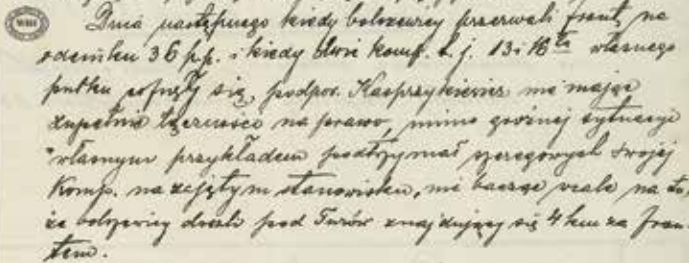 WBH
Dnia następnego kiedy bolszewicy przerwali front, na
odcinku 36 p.p. i kiedy dwie komp. t. j. 13 i 16 ta własnego
pułku cofnęły się, podpor. Kasprzykiewicz nie mając
zupełnie łączności na prawo, mimo groźnej sytuacji
własnym przykładem podtrzymał szeregowych swojej
Komp. na zajętym stanowisku, nie bacząc wcale na to,
że bolszewicy doszli pod Turów znajdujący się 4 km za fron-
tem.